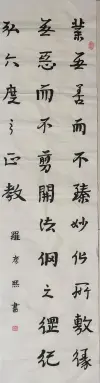 業無善而不臻妙化所敷緣
無惡而不剪開法網之綱紀
弘六度之正教
羅書